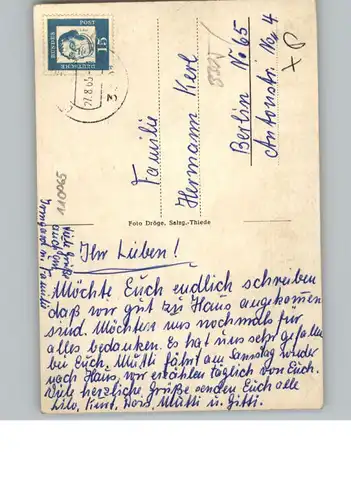 DEUTSCHE
BUNDES
POST
15
21.8.65-
3
Familie
Hermann Kerl
Berlin No 65
Antonstr. No 4
110065
Foto Dröge, Salzg.-Thiede
Ihr Lieben!
Möchte Euch endlich schreiben
daß wir gut zu Haus angekommen
sind. Möchten uns nochmals für
alles bedanken. Es hat uns sehr gefallen
bei Euch. Mutti fährt am Samstag wieder
nach Haus, wir erzählen täglich von Euch.
Viele herzliche Grüße senden Euch alle
Lilo, Kurt, Doris, Mutti u. Gitti.
Viele Grüße
auch von